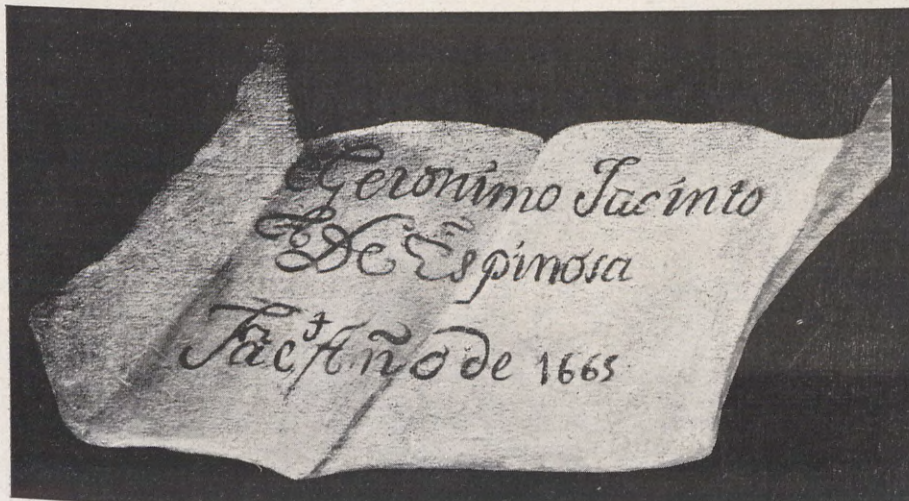 Geronimo Jacinto
De Espinosa
Fac.t Año de 1665